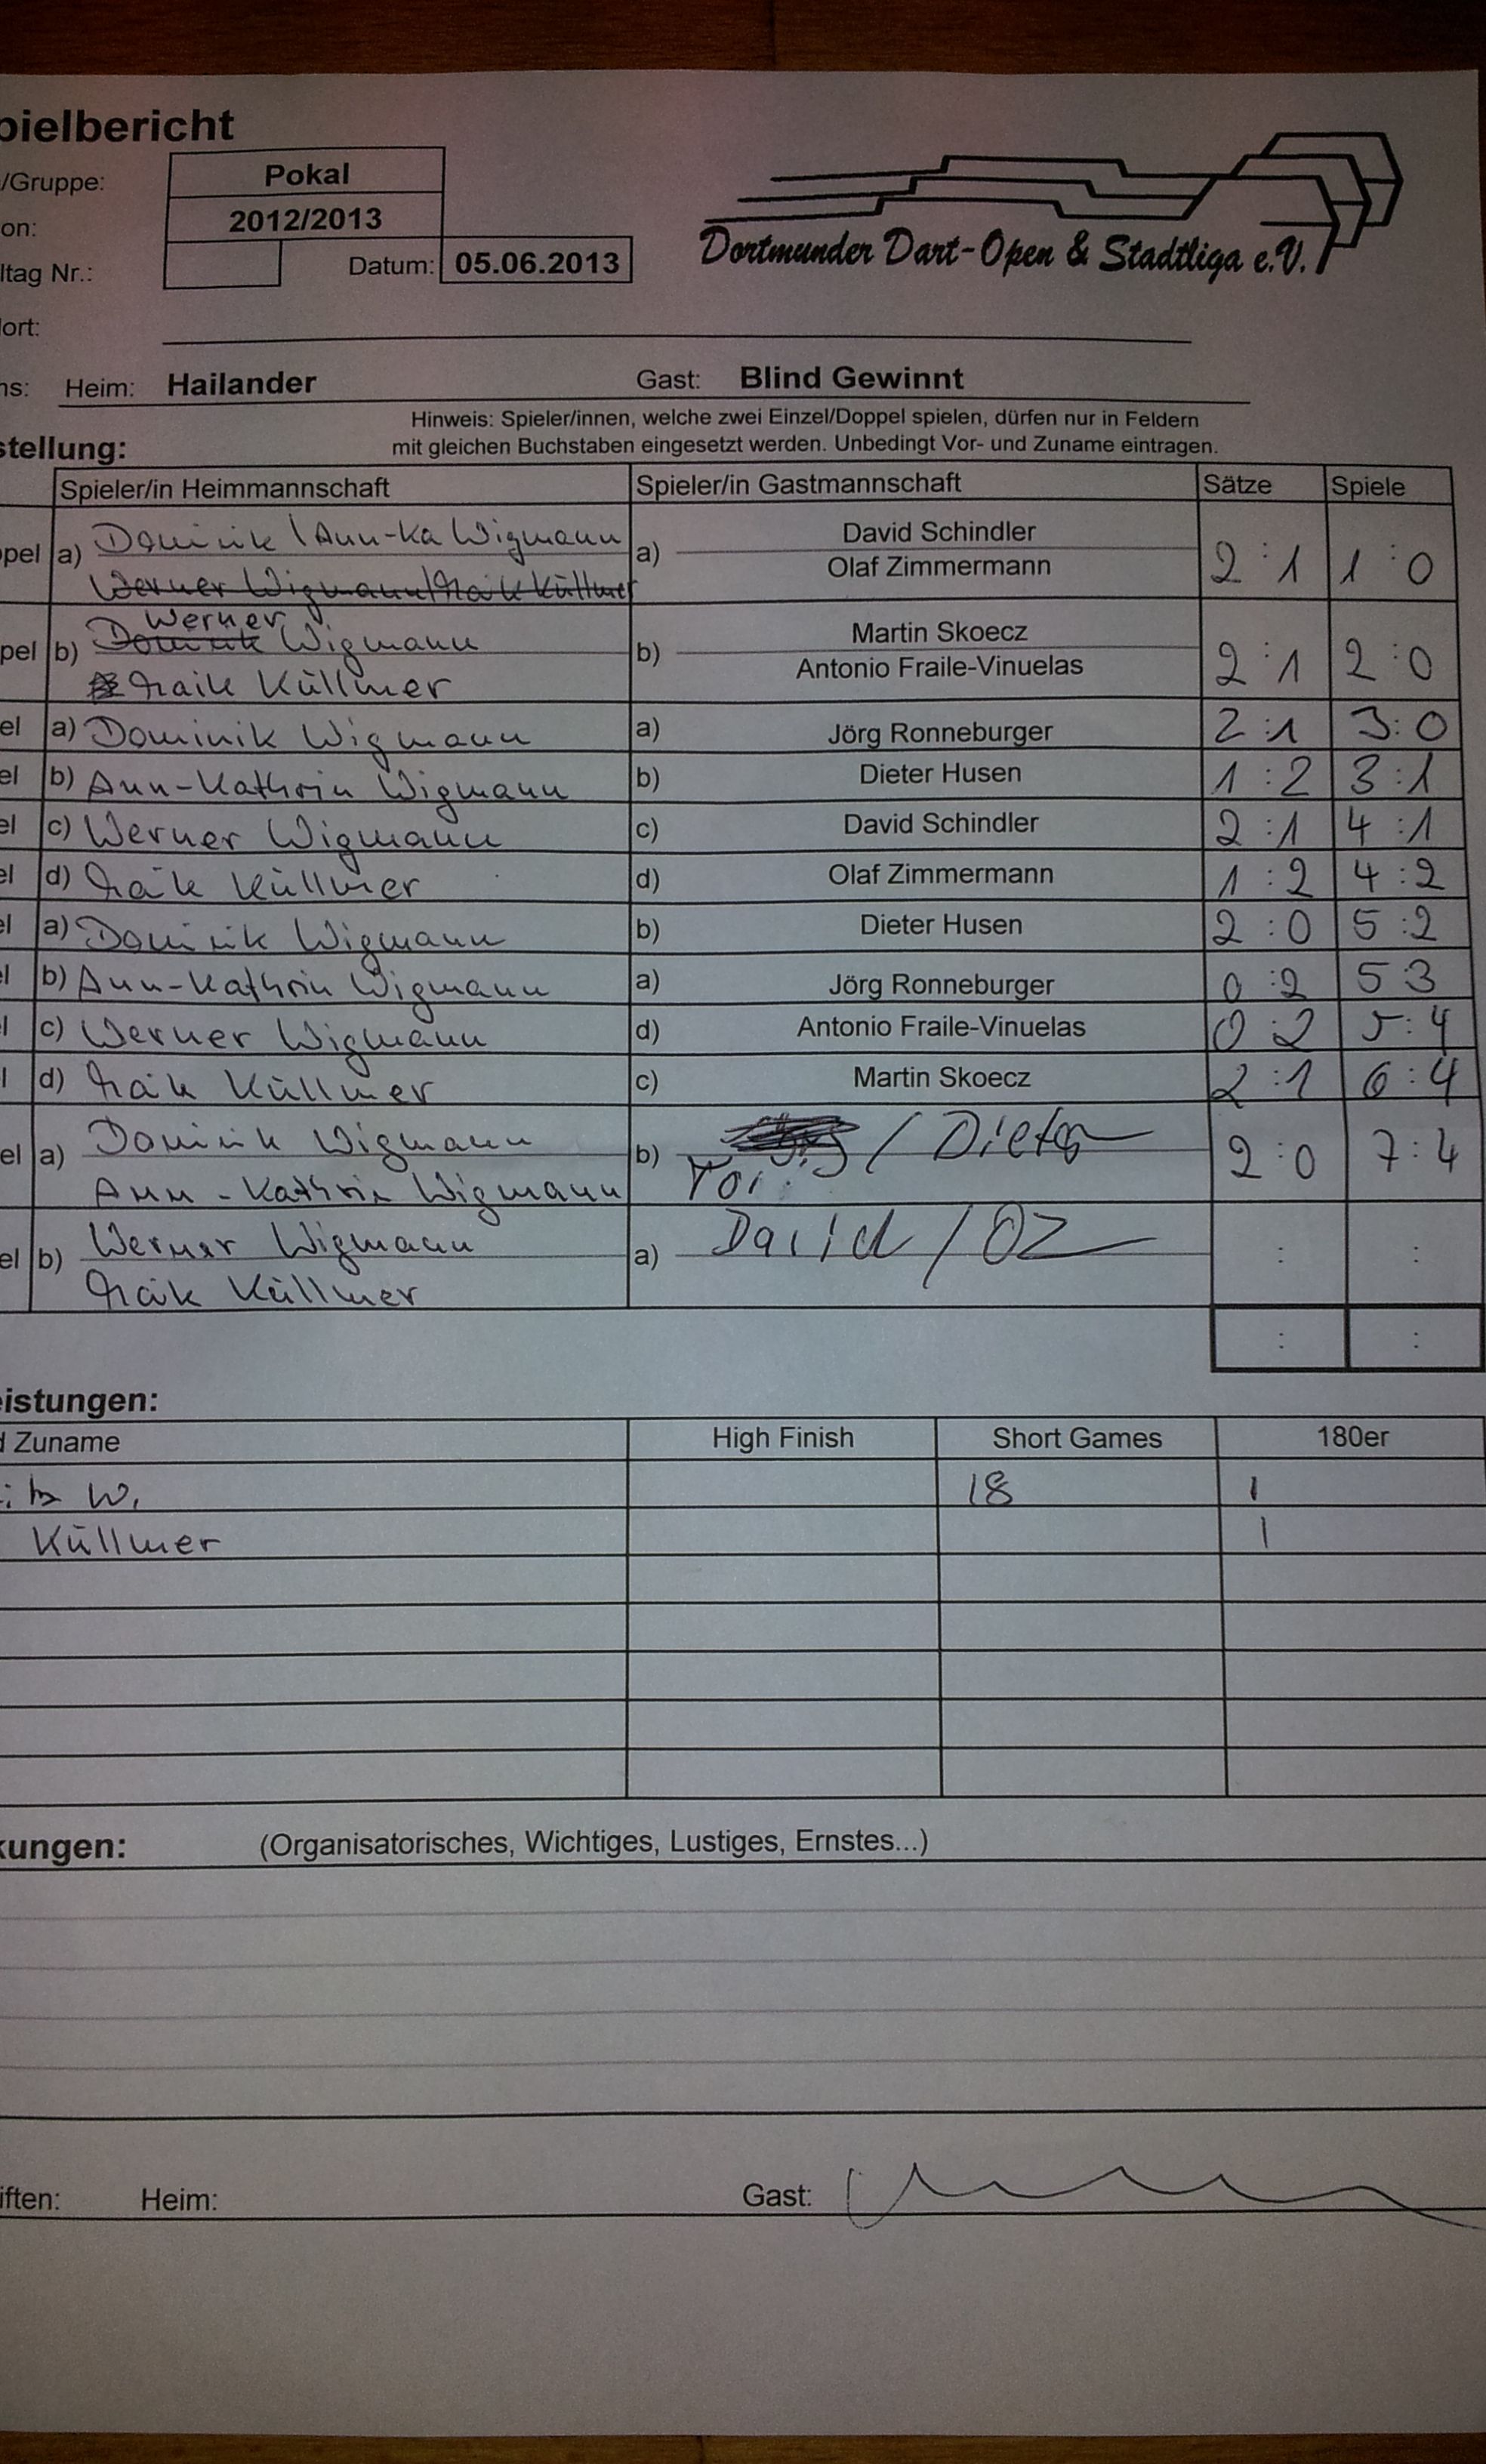 pielbericht
/Gruppe: Pokal
on: 2012/2013
ltag Nr.: Datum: 05.06.2013
Dortmunder Dart-Open & Stadtliga e.V.
ort:
ns: Heim: Hailander Gast: Blind Gewinnt
Hinweis: Spieler/innen, welche zwei Einzel/Doppel spielen, dürfen nur in Feldern
stellung: mit gleichen Buchstaben eingesetzt werden. Unbedingt Vor- und Zuname eintragen.
Spieler/in Heimmannschaft Spieler/in Gastmannschaft Sätze Spiele
Dominik / Ann-Ka Wigmann David Schindler
pel a) a) 2 : 1 1 : 0
Werner Wigmann/Maik Küllmer Olaf Zimmermann
Werner
Dominik Wigmann Martin Skoecz
pel b) b) 2 : 1 2 : 0
Maik Küllmer Antonio Fraile-Vinuelas
el a) Dominik Wigmann a) Jörg Ronneburger 2 : 1 3 : 0
el b) Ann-Kathrin Wigmann b) Dieter Husen 1 : 2 3 : 1
el c) Werner Wigmann c) David Schindler 2 : 1 4 : 1
el d) Maik Küllmer d) Olaf Zimmermann 1 : 2 4 : 2
el a) Dominik Wigmann b) Dieter Husen 2 : 0 5 : 2
el b) Ann-Kathrin Wigmann a) Jörg Ronneburger 0 : 2 5 3
l c) Werner Wigmann d) Antonio Fraile-Vinuelas 0 : 2 5 : 4
l d) Maik Küllmer c) Martin Skoecz 2 : 1 6 : 4
Dominik Wigmann / Dieter
el a) b) 2 : 0 7 : 4
Ann-Kathrin Wigmann
Werner Wigmann David / OZ
el b) a) : :
Maik Küllmer
: :
eistungen:
d Zuname High Finish Short Games 180er
W. 18 1
Küllmer 1
kungen: (Organisatorisches, Wichtiges, Lustiges, Ernstes...)
iften: Heim: Gast: